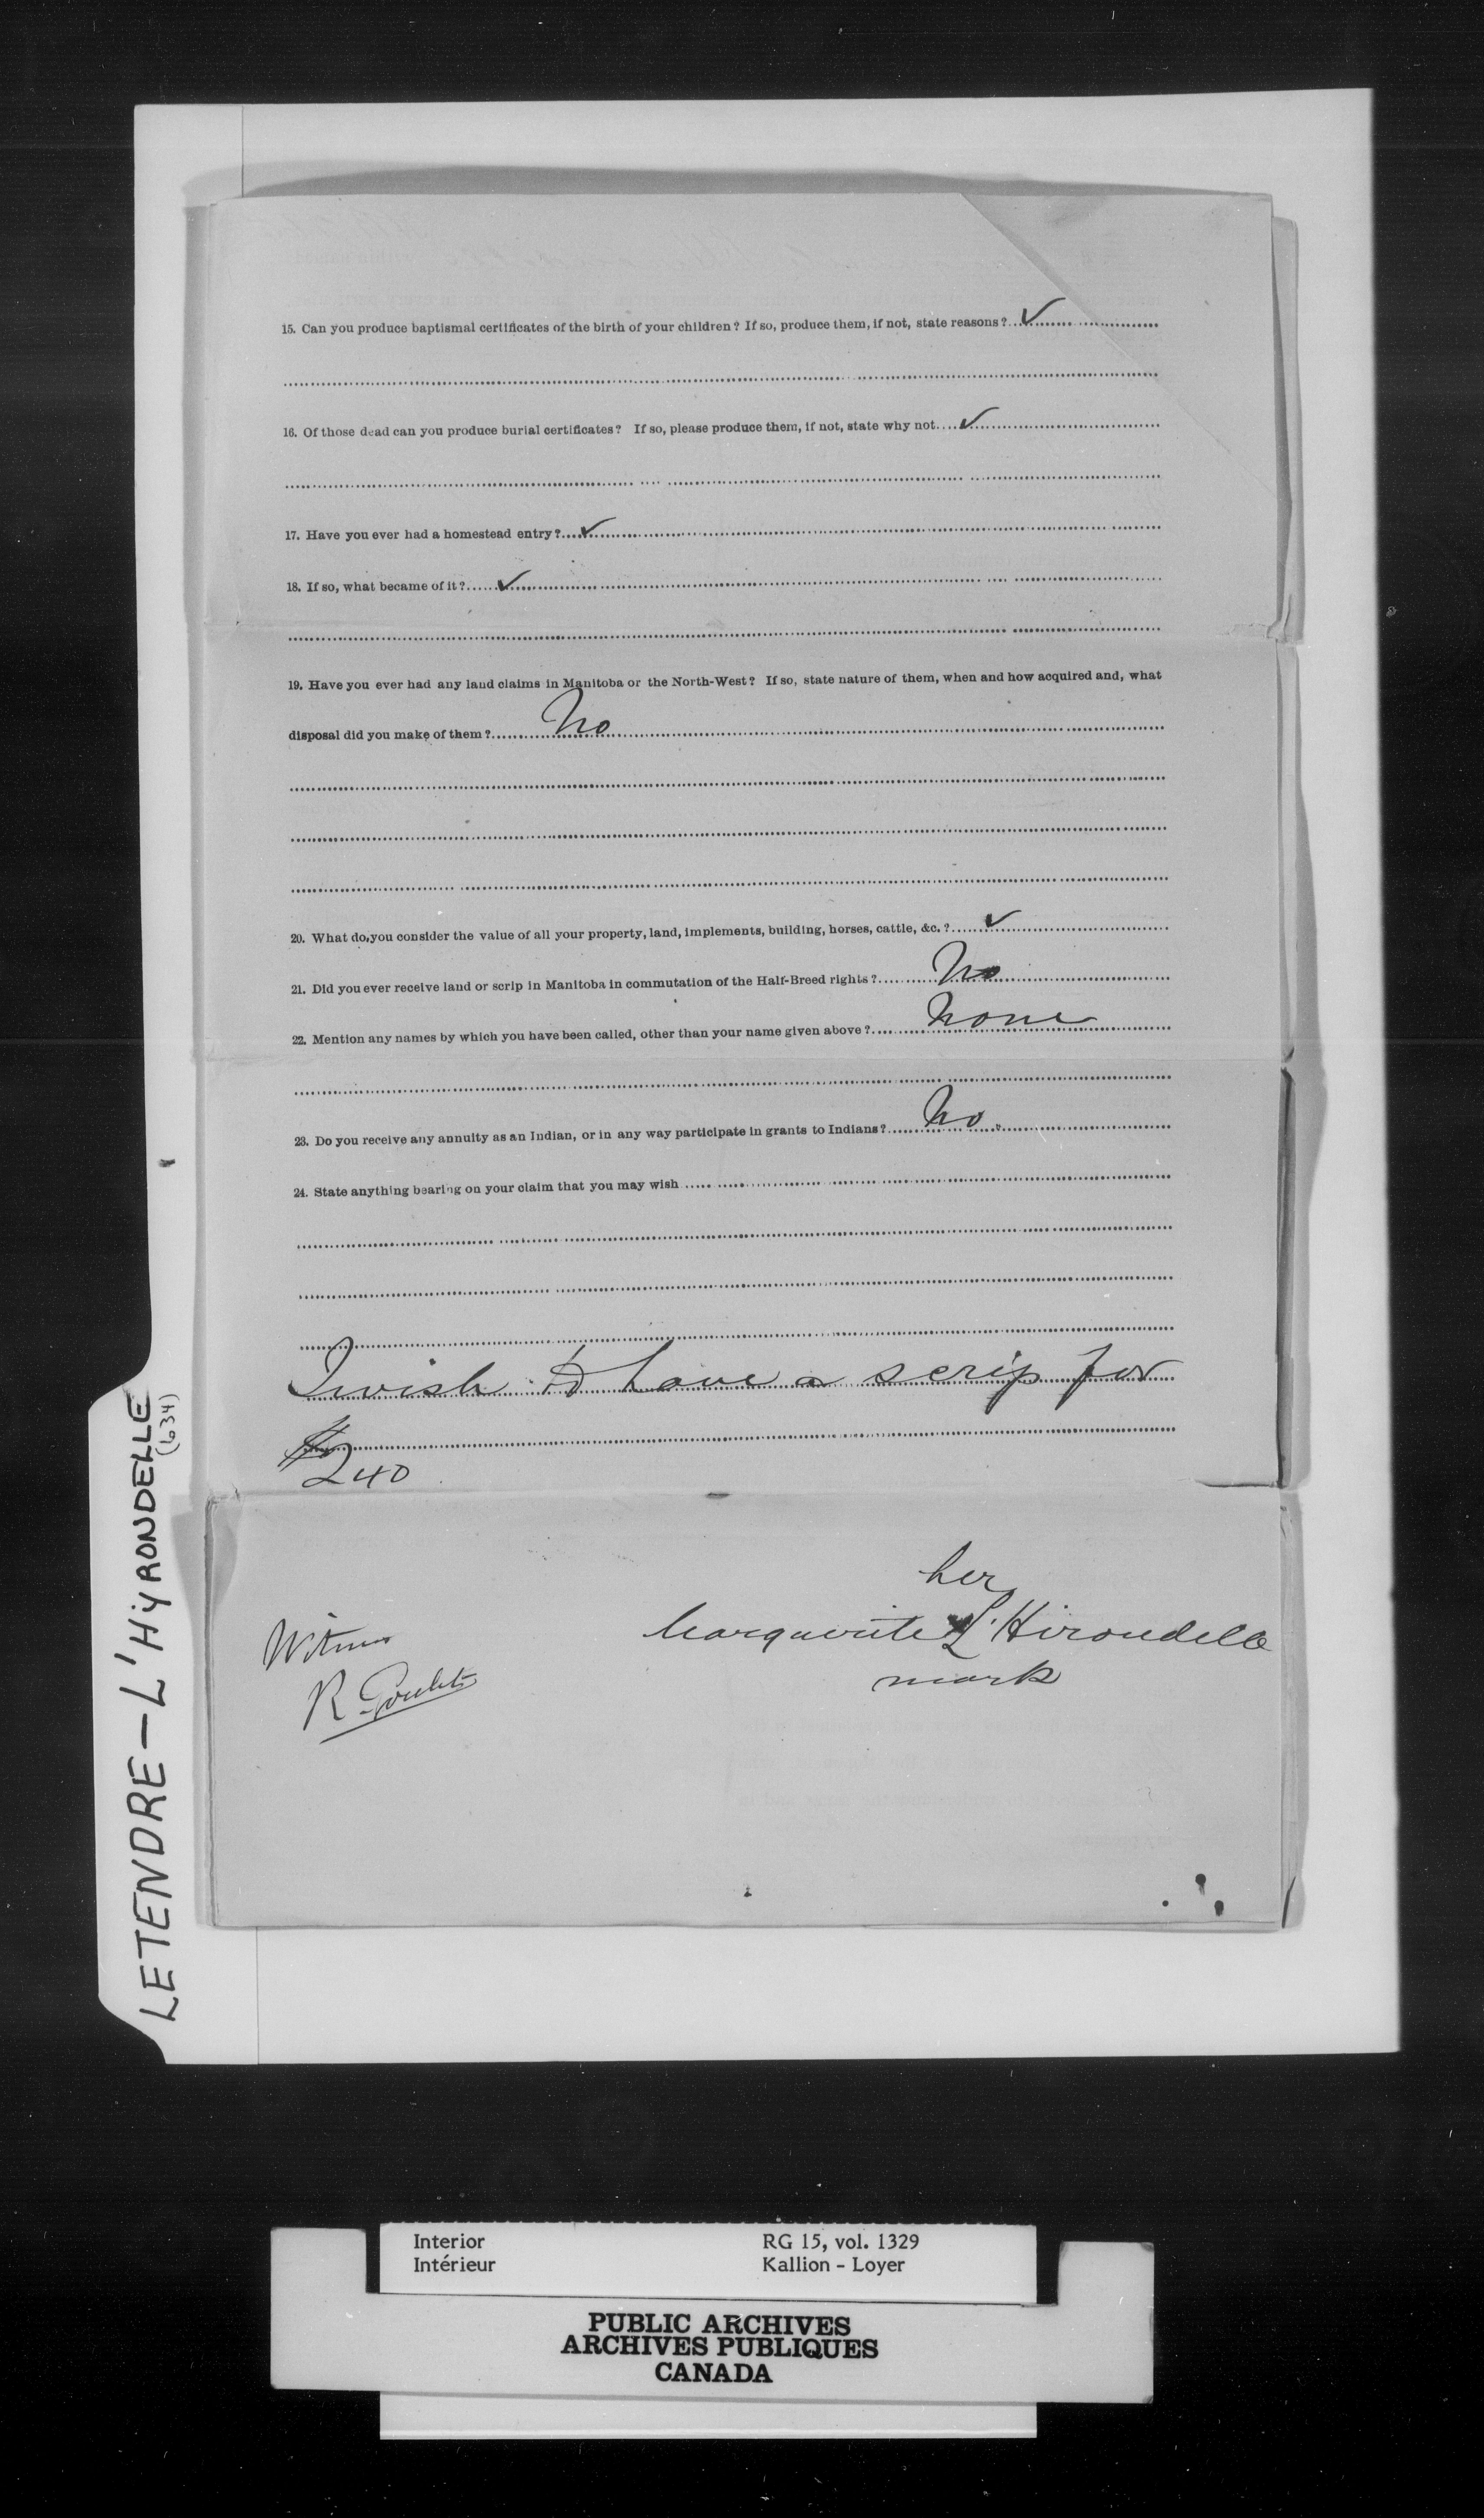 15. Can you produce baptismal certificates of the birth of your children? If so, produce them, if not, state reasons? ✓
16. Of those dead can you produce burial certificates? If so, please produce them, if not, state why not ✓
17. Have you ever had a homestead entry? ✓
18. If so, what became of it? ✓
19. Have you ever had any land claims in Manitoba or the North-West? If so, state nature of them, when and how acquired and, what
disposal did you make of them? No
20. What do you consider the value of all your property, land, implements, building, horses, cattle, &c.? ✓
21. Did you ever receive land or scrip in Manitoba in commutation of the Half-Breed rights? No
22. Mention any names by which you have been called, other than your name given above? None
23. Do you receive any annuity as an Indian, or in any way participate in grants to Indians? No.
24. State anything bearing on your claim that you may wish
I wish to have a scrip for
$240
her
Marguerite X L'Hirondelle
mark
Witness
R. Goulet
LETENDRE - L'HYRONDELLE
(634)
Interior
Intérieur
RG 15, vol. 1329
Kallion - Loyer
PUBLIC ARCHIVES
ARCHIVES PUBLIQUES
CANADA